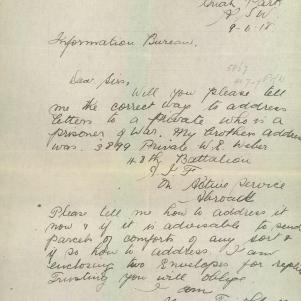 Park
N S W
9-6-18
Information Bureau.
Dear Sirs,
Will you please tell
me the correct way to address
letters to a private who is a
prisoner of War. My brothers address
was. 3899 Private W. E. Weber
48th Battalion
A I F
On Active Service
Abroad
Please tell me how to address it
now & if it is advisable to send
parcels of comforts of any sort &
if so how to address. I am
enclosing two Envelopes for reply
Trusting you will oblige
I am